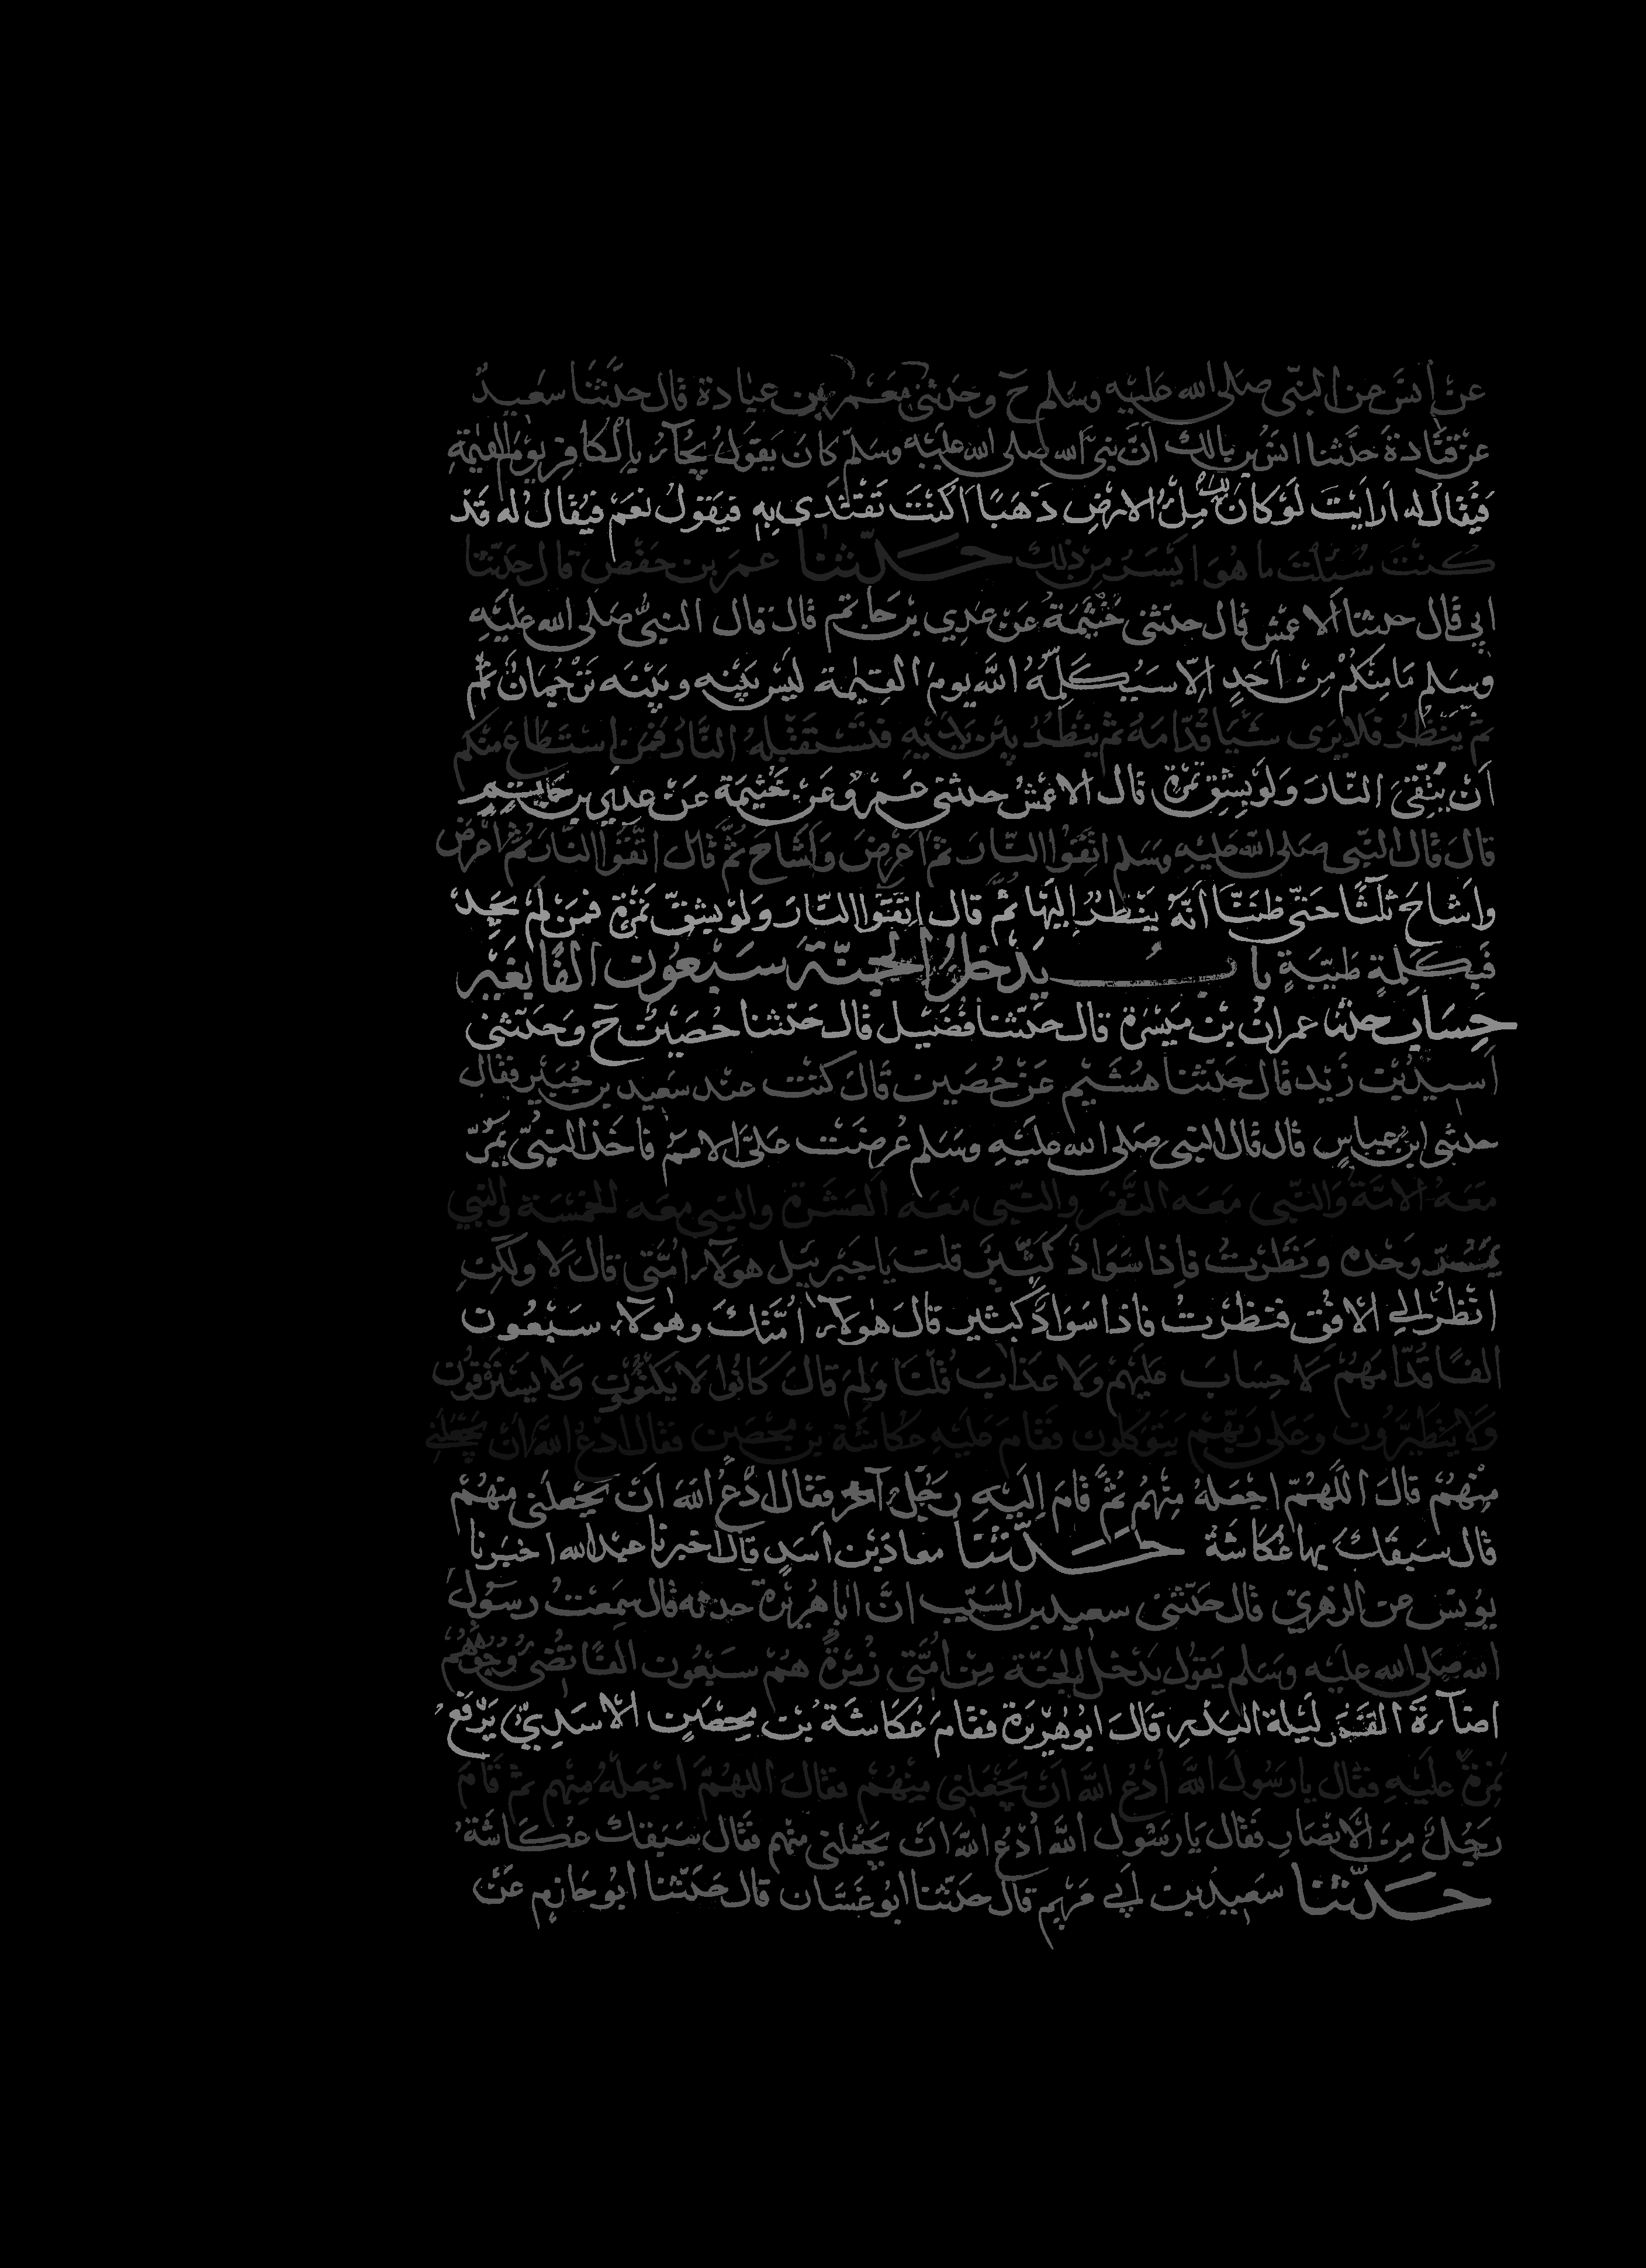 عَنْ أَنَسٍ عَنِ النَّبِيِّ صَلَى الله عَلَيْهِ وَسَلم حَ وحَدثني مَعْمَر بن عبادة قَال حدَّثَنَا سَعِيدٌ
عَنْ قَتَادَةَ حَدَّثنا انَسُ بن مالك اَنَّ نبيَّ الله صلى الله عليه وسَلّم كَانَ يَقُولُ يُجَآءُ بِالْكَافِرِ يوْمَ القيٰمَةِ
فَيُقَالُ له اَرَايْتَ لَوْ كَانَ لك مِلْءُ الارْضِ ذَهَبًا اَكُنْتَ تَفْتَدى بِهِ فيَقولُ نعَمْ فيُقالُ له قَدْ
كُنتَ سُئِلْتَ ما هُوَ ايْسَرُ مِن ذٰلِكَ حَدّثنا عمَر بن حَفْص قال حَدّثنا
ابي قَال حدثنا الاعمش قال حدثني خَيْثَمَةُ عَن عَدِي بن حَاتم قَالَ قال النبِيُّ صَلى الله عَلَيْهِ
وَسَلم مَا مِنْكُمْ مِنْ اَحَدٍ اِلّا سَيُكَلِّمُهُ اللَّه يومَ القيٰمة ليْسَ بَيْنِه وبَيْنَه تَرْجُمَانٌ ثُم
ثمّ يَنْظُرُ فَلا يَرَى شَيْئًا قُدّامَهُ ثم ينْظُرُ بيْنَ يَدَيْهِ فتَسْتَقْبِلهُ النَّارُ فمَن اسْتَطَاعَ منكم
اَنْ يَتَّقِيَ النّارَ وَلَوْ بِشِقِ تَمْرَةٍ قال الاعْمَشُ حدثني عَمْرو عَنْ خَيْثَمَةَ عَنْ عدِي بن حَاتم
قَالَ قَالَ النَّبِي صَلى الله عَلَيْهِ وسَلم اتَّقُوا النّارَ ثمّ اَعْرَضَ وَاَشَاحَ ثُمَّ قَالَ اتَّقُوا النّارَ ثُمّ اَعْرَضَ
واَشَاحَ ثلٰثًا حَتّى ظَنَنَّا اَنّهُ يَنْظُرُ اِلَيْهَا ثُمَّ قَال اتّقُوا النّارَ وَلوْ بِشقِّ تَمْرَةٍ فمَنْ لَمْ يَجِدْ
فَبِكَلِمَةٍ طَيِّبَةٍ بابُ يَدْخُلُ الجَنّةَ سَبْعُون الفًا بِغَيْر
حِسَابٍ حدثنا عمرانُ بْن مَيْسَرَة قال حدّثنا فُضَيْل قَال حَدّثنا حُصَيْن حَ وحَدّثني
اَسيدُ بْن زَيْد قال حَدّثنا هُشَيْم عَنْ حُصَيْن قَالَ كُنْتُ عِنْد سَعيد بن جُبَيْر فقال
حدثني ابنُ عباسٍ قال قال النبي صَلى الله عَلَيْهِ وَسَلم عُرِضَتْ عَلَيَّ الامَمُ فاَخَذ النبيُّ يَمُرُّ
مَعَهُ الامّة وَالنّبي مَعَه النَّفَرَ والنّبى مَعَه العَشَرَةُ والنّبي معَه الخمْسَة والنّبي
يَمُرُّ وَحْدَه وَنَظَرْتُ فاِذا سَوَادٌ كَثيْرٌ قلت يَا جبْريل هَولآءِ اُمّتي قالَ لا وَلٰكِنِ
انظُرْ الي الاُفُقِ فنظَرْتُ فاذا سَوَادٌ كَثير قَالَ هٰولآءِ اُمّتُكَ وهٰولآءِ سَبْعُون
الفًا قُدّامَهُمْ لَا حِسَابَ عَلَيْهِمْ ولا عَذابَ قُلْتُ وَلِمَ قَالَ كَانُوا لَا يَكْتوُونَ وَلَا يَسْتَرْقُونَ
وَلَا يتَطَيَّرُونَ وَعَلى رَبِّهِمْ يَتَوَكلون فَقَامَ اليْهِ عكَاشَة بن مِحْصَن فقَال ادْعُ اللهَ اَنْ يَجْعَلَني
مِنْهُمْ قَالَ اللَّهُمّ اجْعَلهُ مِنْهُم ثُمَّ قَامَ اِلَيْهِ رَجُلٌ آخر فقَال ادْعُ اللهَ اَنْ يَجْعلَني منهُمْ
قال سَبقَكَ بها عُكَاشَة حَدّثَنَا معاذ بْن اَسَدٍ قَال اخْبرنا عبد الله اخبَرنا
يُونُسُ عن الزهريِّ قال حَدّثني سعيد بن المسَيّب انَّ ابا هُرَيْرَة حدثه قال سَمِعْتُ رسوْل
اللهِ صَلى الله عليْه وَسَلم يَقُول يَدْخُل الجَنّة مِنْ اُمّتي زُمْرَةٌ هُمْ سَبْعُون الفًا تُضىُ وُجُوهُهُمْ
اضآءَةَ القَمَر لَيْلة البَدْرِ قَالَ ابُو هُرَيْرَة فَقَامَ عُكَاشَة بْن مِحْصَنٍ الاَسَدِيّ يَرْفَعُ
نَمِرَةً عليْهِ فقَال يا رسُولَ الله اُدْعُ اللهَ اَنْ يَجْعَلني مِنْهُمْ فقالَ اللهُمّ اجْعَلهُ مِنْهم ثم قَامَ
رَجُلٌ مِنَ الْاَنصَارِ فَقَال يَا رَسُول اللهِ اُدْعُ اللهَ انْ يَجْعلني منْهم فقَال سَبَقك عُكَاشَة
حَدّثنا سَعيدُ بن اَبي مَرْيَم قال حَدّثنا ابُو غَسَّان قال حَدّثنا ابُو حَازم عَنْ